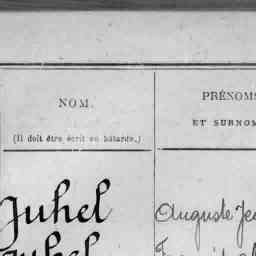 NOM.
(Il doit être écrit en bâtarde.)
PRÉNOMS
ET SURNOM
Juhel
Auguste Je
Juhel